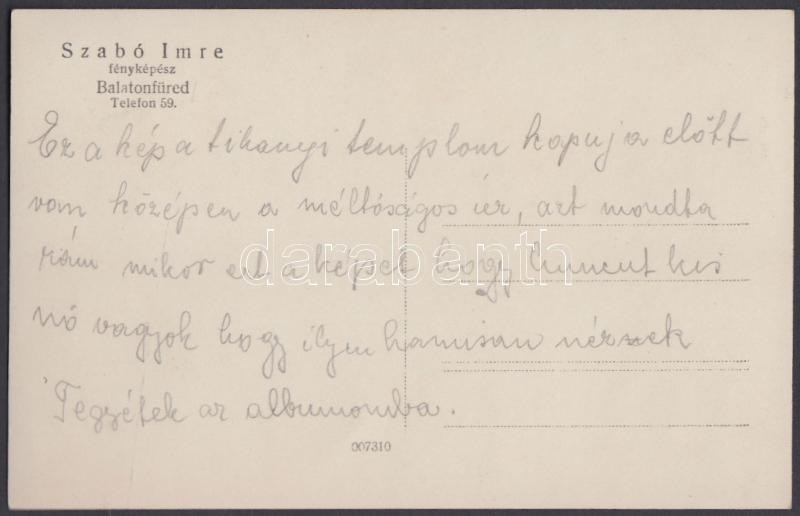 Szabó Imre
fényképész
Balatonfüred
Telefon 59.
Ez a kép a tihanyi templom kapuja előtt
van középen a méltóságos úr, azt mondta
rám mikor ezt a képet hogy huncut kis
nő vagyok hogy ilyen hamisan nézek
Tegyétek az albumomba.
darabanth
007310